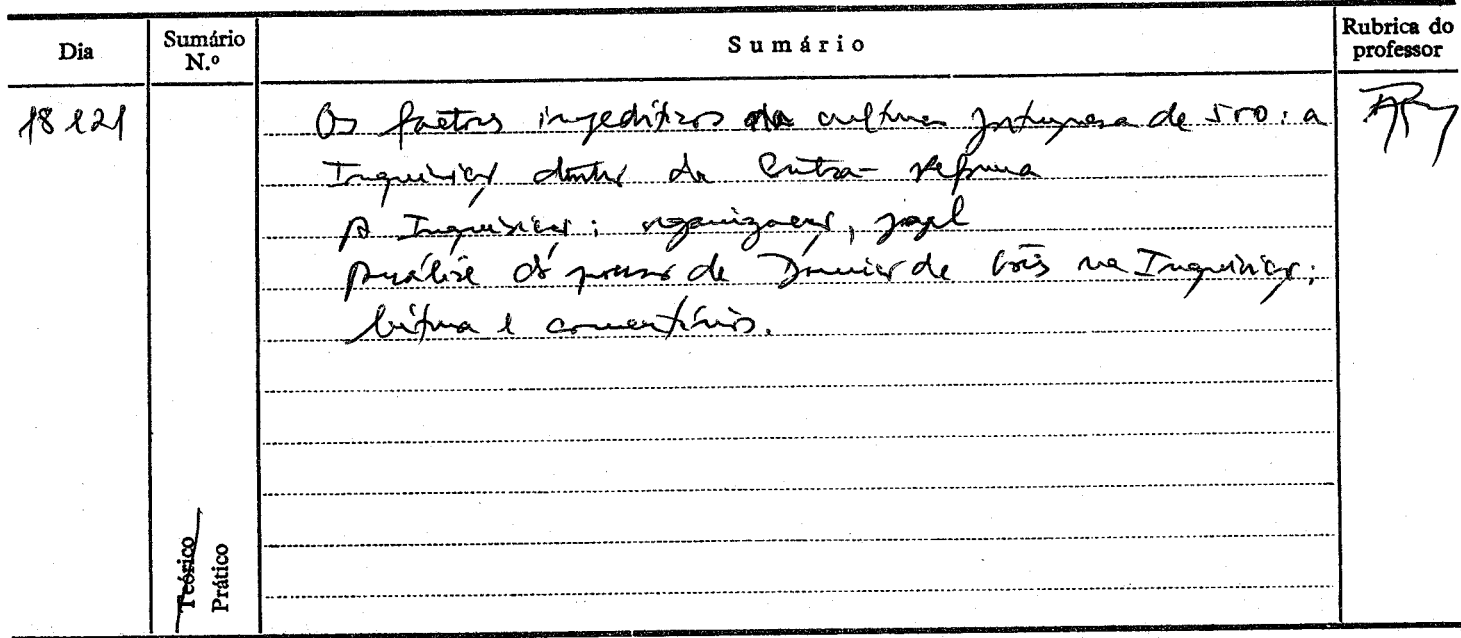 Dia
Sumário
N.º
Sumário
Rubrica do
professor
18 e 21
Os factores impeditivos da cultura portuguesa de 500: a
Inquisição dentro da Contra-Reforma
A Inquisição: organização, papel
Análise do processo de Damião de Góis na Inquisição;
leitura e comentários.
Teórico
Prático